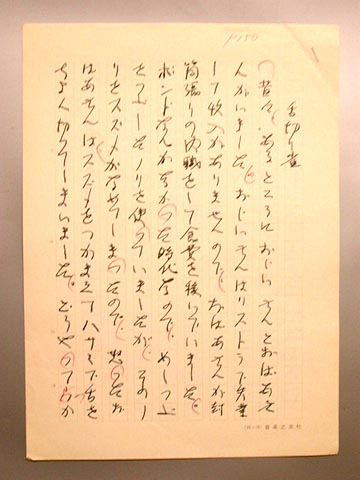 P150
舌切り雀
昔々、あるところにおじいさんとおばあさ
んがいました。おじいさんはリストラで失業
して収入がありませんので、おばあさんが封
筒張りの内職をして食費を稼いでいました。
ボンドなんかなかった時代なので、めしつぶ
をつぶしたノリを使っていましたが、そのノ
リをスズメがなめてしまったので、怒ったお
ばあさんはスズメをつかまえてハサミで舌を
ちょん切ってしまいました。